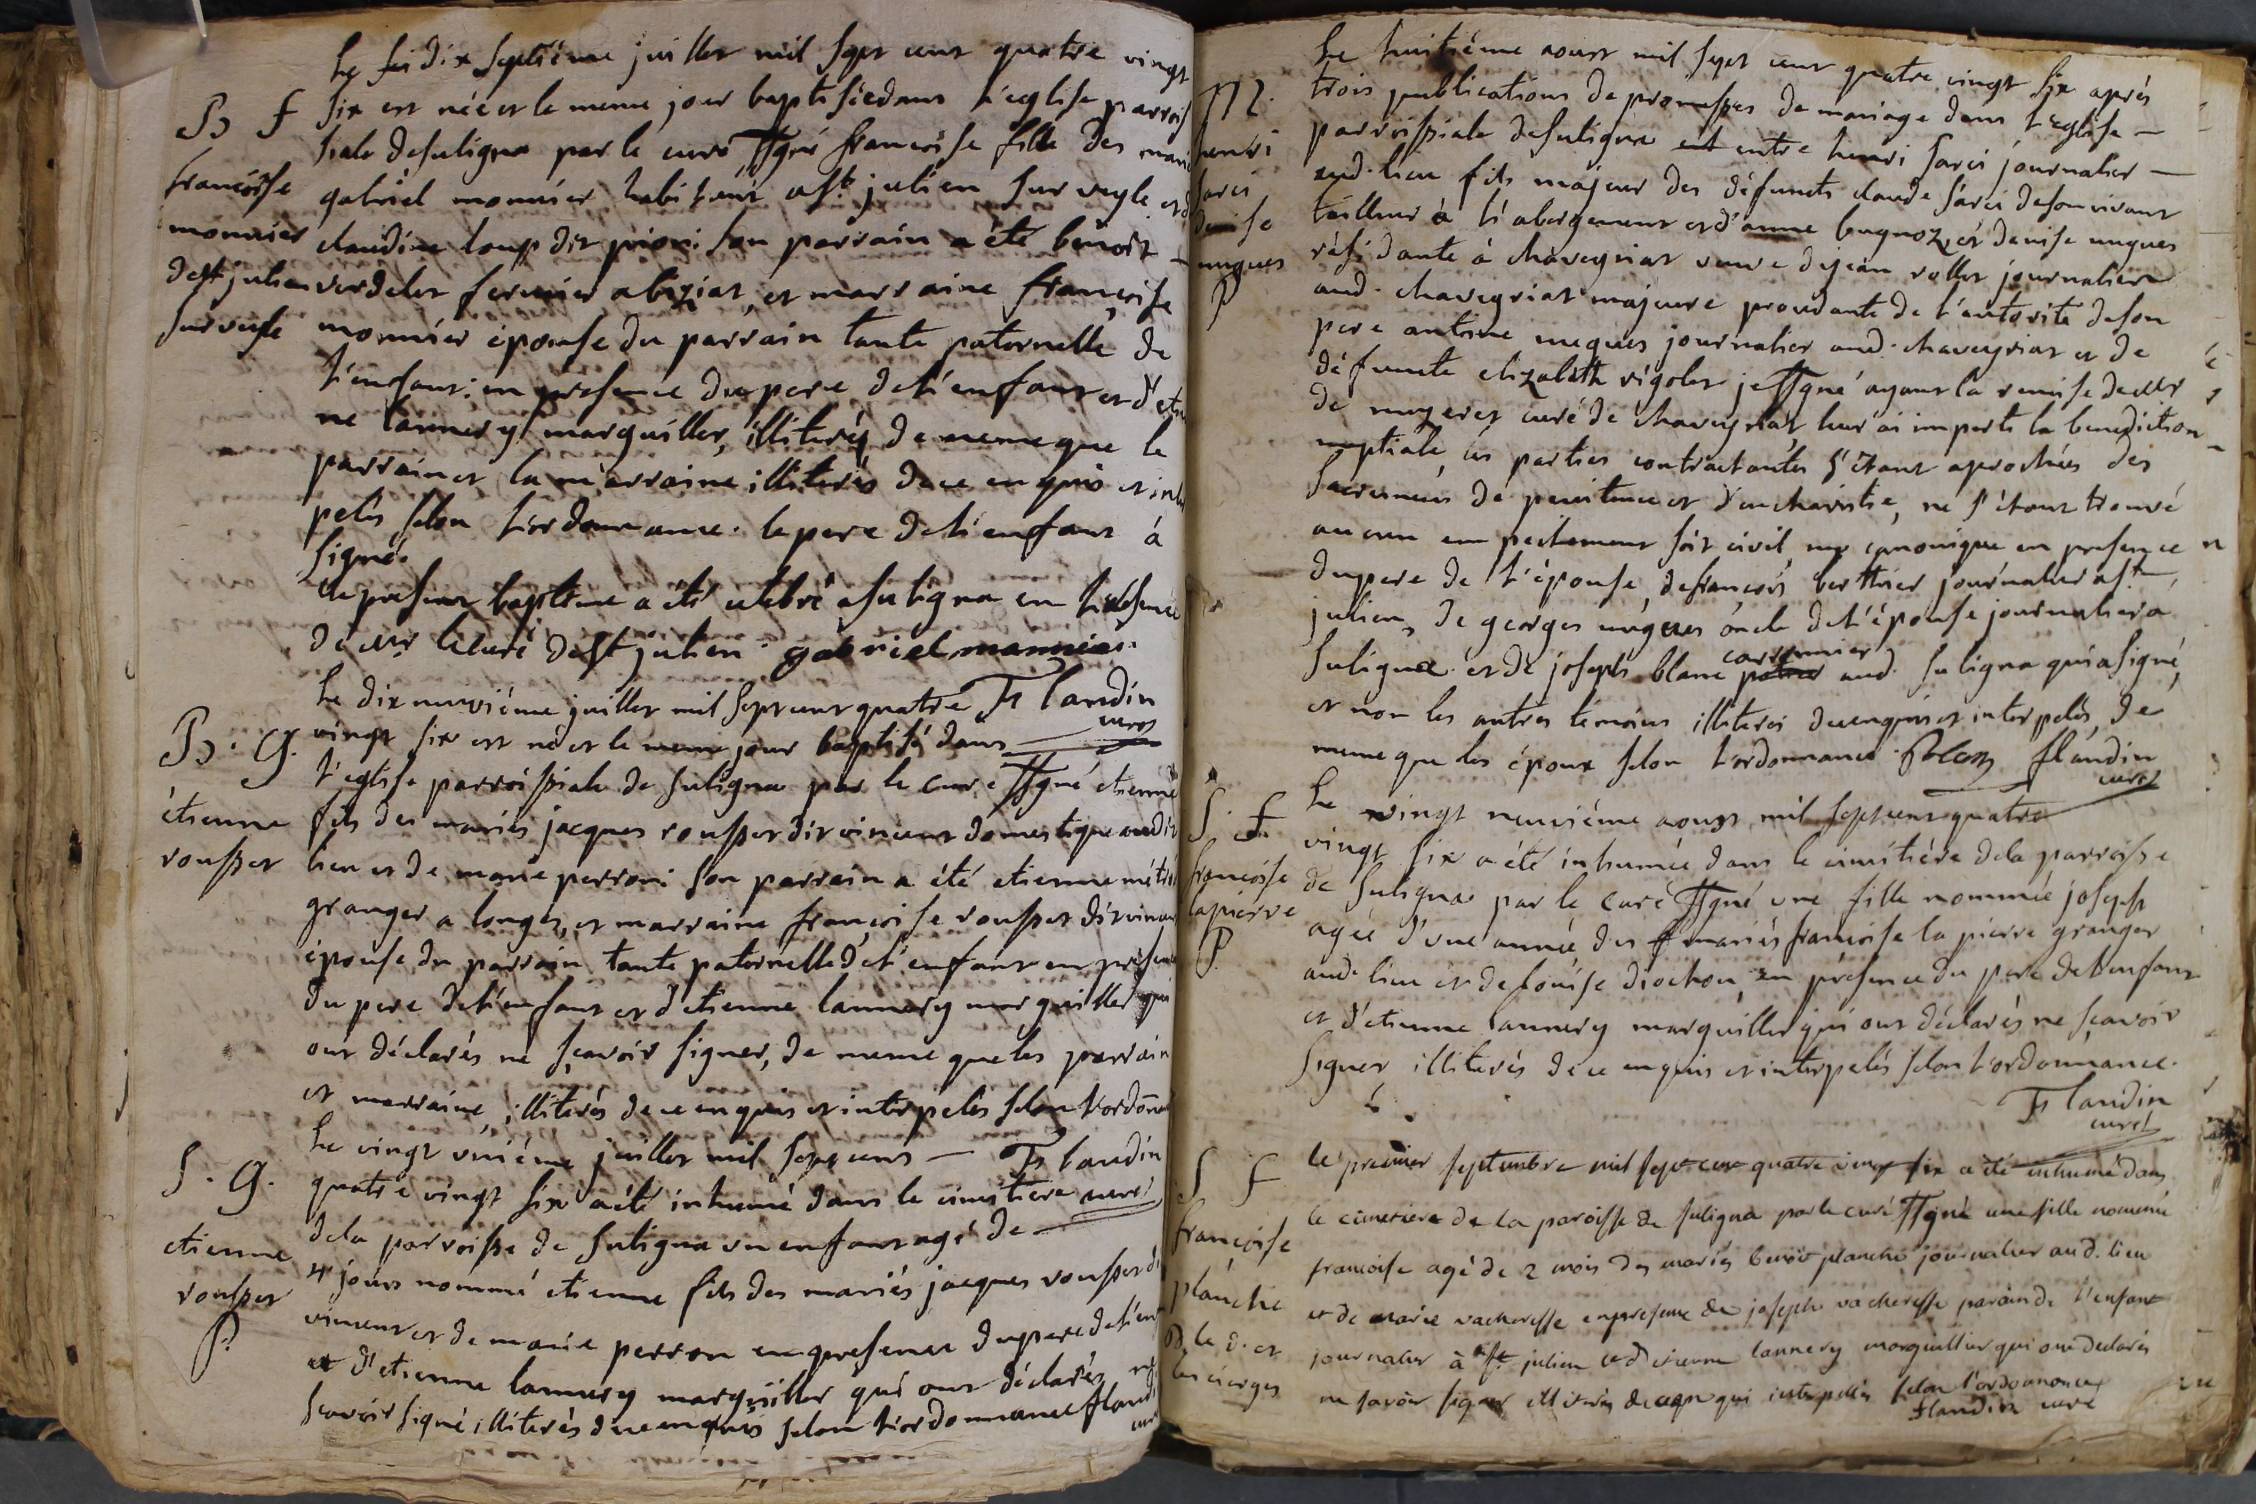 Le dix septiéme juillet mil sept cent quatre vingt
B f six est née et le meme jour baptisée dans l'eglise parrois
siale de suligna par le curé ssgné françoise fille des mariés
françoise gabriel monnier habitant a st julien sur vesle et d
monnier claudine loup dit prioni son parrain a été benoit
de st julien verdelet fermier a biziat, et marraine françoise
sur vesle monnier épouse du parrain tante paternelle de
l'enfant: en presence du pere de l'enfant et d'etien
ne lannery marguiller, illiterés de meme que le
parrain et la marraine illiterés de ce enquis et inter
pelés selon l'ordonnance. le pere de l'enfant à
signé.
le present baptême a été celebré a suligna en l'absence
de Mr le curé de st julien. gabriel monnier.
Le dix neuviéme juillet mil sept cent quatre Flandin
B. G. vingt six est né et le meme jour baptisé dans curé
l'eglise parroissiale de suligna par le curé ssgné etienne
étienne fils des mariés jacques rousset dit vincent domestique audit
rousset lieu et de marie perroni son parrain a été etienne
granger a longes, et marraine françoise rousset dit vincent
épouse du parrain tante paternelle de l'enfant en présence
du pere de l'enfant et d'etienne lannery marguiller qui
ont déclarés ne sçavoir signer, de meme que les parrain
et marraine, illiterés de ce enquis et interpelés selon l'ordonn
Le vingt uniéme juillet mil sept cent — Flandin
S. G. quatre vingt six a été inhumé dans le cimitiere curé
de la parroisse de suligna un enfant agé de —
etienne 4 jours nommé etienne fils des mariés jacques rousset di
rousset vincent et de marie perron en presence du pere de l'enf
P. et d'etienne lannery marguiller qui ont déclarés ne
sçavoir signé illiterés de ce enquis selon l'ordonnance flandi
curé
Le huitiéme aoust mil sept cent quatre vingt six aprés
M. trois publications de promesses de mariage dans l'eglise —
henri parroissiale de suligna entre henri sarci journalier —
sarci aud. lieu fils majeur des défuncts claude sarci de son vivant
denise tailleur à l'abergement et d'anne bugnoz, et denise uugues
uugues résidante à chaveyriat veuve de jean rollet journalier
P aud. chaveyriat majeure procedante de l'autorité de son
pere antoine uugues journalier aud. chaveyriat et de
défuncte elizabeth rigolet je ssgné ayant la remise de Mr
de mugeret curé de chaveyriat leur ai imparti la benediction
nuptiale, les parties contractantes s'étant aprochées des
sacremens de penitence et d'eucharistie, ne s'étant trouvé
aucun empechement soit civil ny canonique en presence
du pere de l'épouse, de françois berthier journalier a st
julien, de georges uugues oncle de l'épouse journalier a
suligna et de joseph blanc carronnier aud. suligna qui a signé,
et non les autres témoins illiterés de ce enquis et interpelés, de
meme que les époux selon l'ordonnance. flandin
curé
Le vingt neuviéme aoust mil sept cent quatre
S. f. vingt six a été inhumée dans le cimitiére de la parroisse
françoise de suligna par le curé ssgné une fille nommée joseph
lapierre agée d'une année, des mariés françoise la pierre granger
P aud. lieu et de louise drochon, en présence du pere de l'enfant
et d'etienne lannery marguiller qui ont déclarés ne sçavoir
signer illiterés de ce enquis et interpelés selon l'ordonnance.
Flandin
curé
le premier septembre mil sept cent quatre vingt six a été inhumé dans
S f le cimetiere de la paroisse de suligna par le curé ssgné une fille nommée
françoise francoise agé de 2 mois des mariés benoit planche journalier aud. lieu
planche et de marie vacheresse en presence de joseph vacheresse parain de l'enfant
journalier à st julien et d etienne lannery marguillier qui ont declarés
les cierges ne savoir signer illiterés de ce enqui interpellés selon l'ordonnance
flandin curé